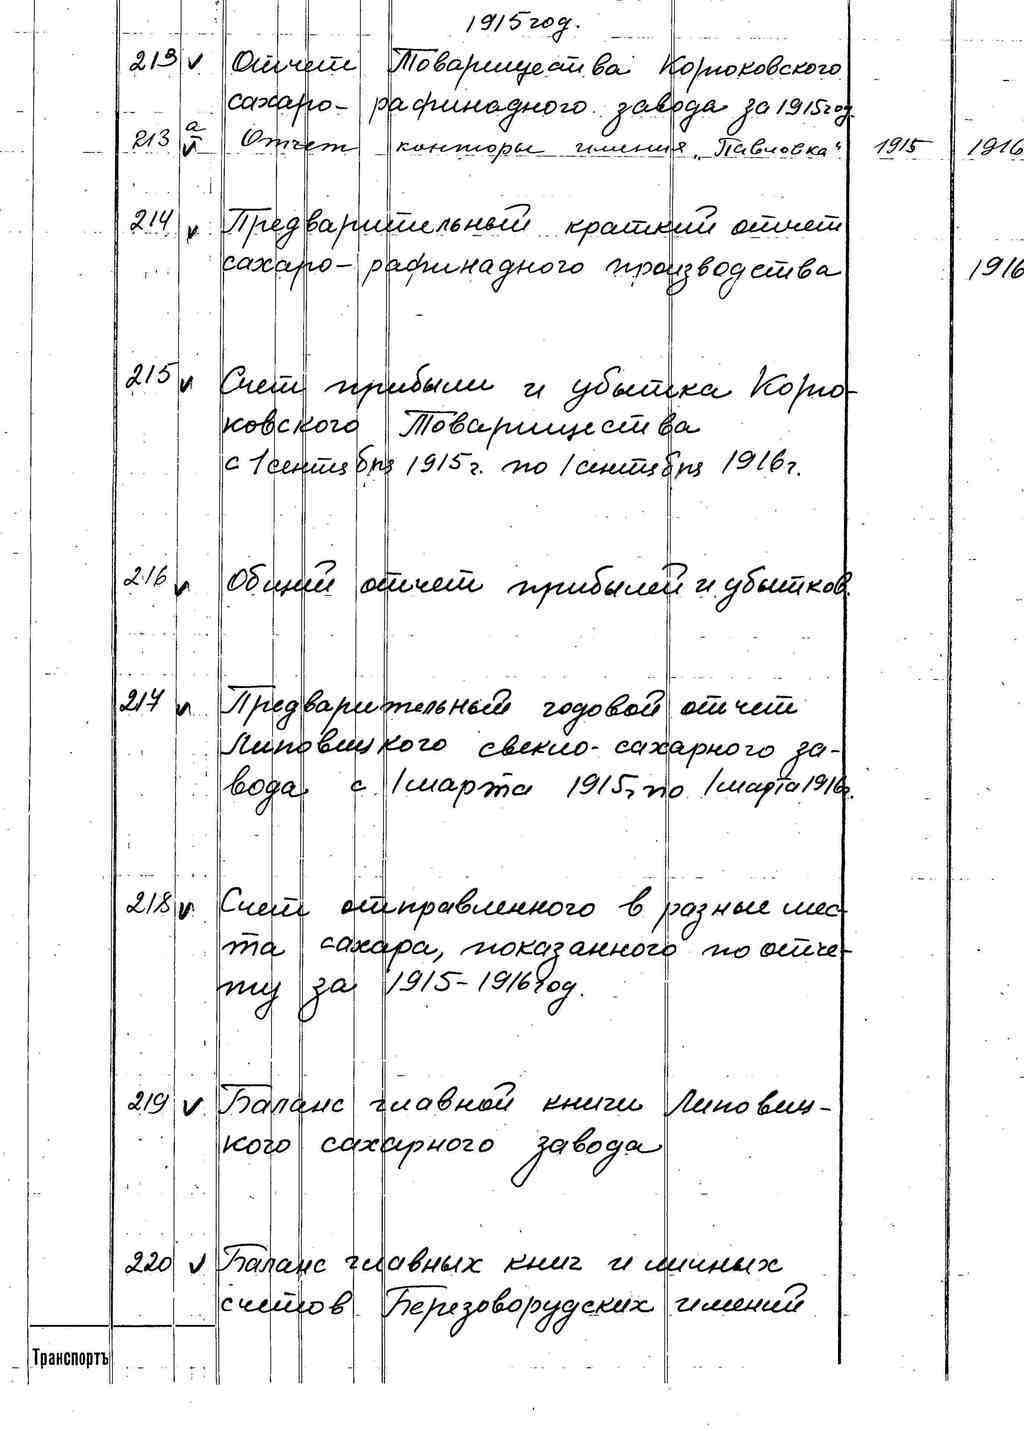 1915 год.
213 v Отчет Товарищества Корюковского
сахаро- рафинадного завода за 1915 год
213 а v Отчет конторы имения "Павловка" 1915 1916
214 v Предварительный краткий отчет
сахаро- рафинадного производства 1916
215 v Счет прибыли и убытка Корю-
ковского Товарищества
с 1 сентября 1915 г. по 1 сентября 1916 г.
216 v Общий отчет прибылей и убытков.
217 v Предварительный годовой отчет
Липовицкого свекло- сахарного за-
вода с 1 марта 1915 г. по 1 марта 1916 г.
218 v Счет отправленного в разные мес-
та сахара, показанного по отче-
ту за 1915-1916 год.
219 v Баланс главной книги Липовиц-
кого сахарного завода
220 v Баланс главных книг и личных
счетов Березоворудских имений
Транспортъ